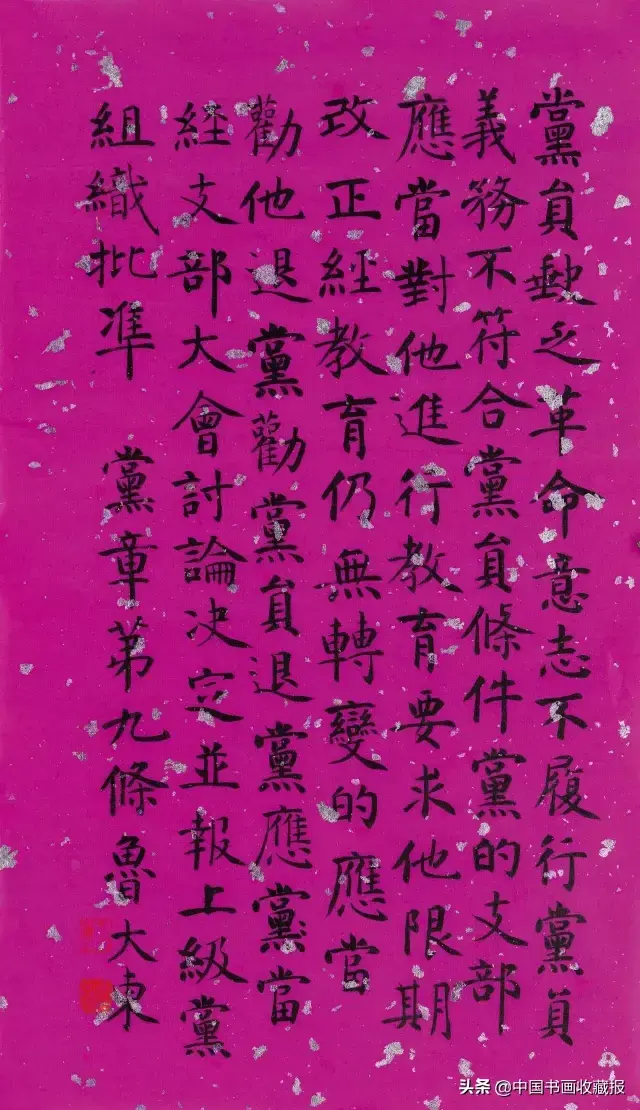 黨員缺乏革命意志不履行黨員
義務不符合黨員條件黨的支部
應當對他進行教育要求他限期
改正經教育仍無轉變的應當
勸他退黨勸黨員退黨應黨當
経支部大會討論决定並報上級黨
組織批準 黨章第九條魯大東
头条 @中国书画收藏报